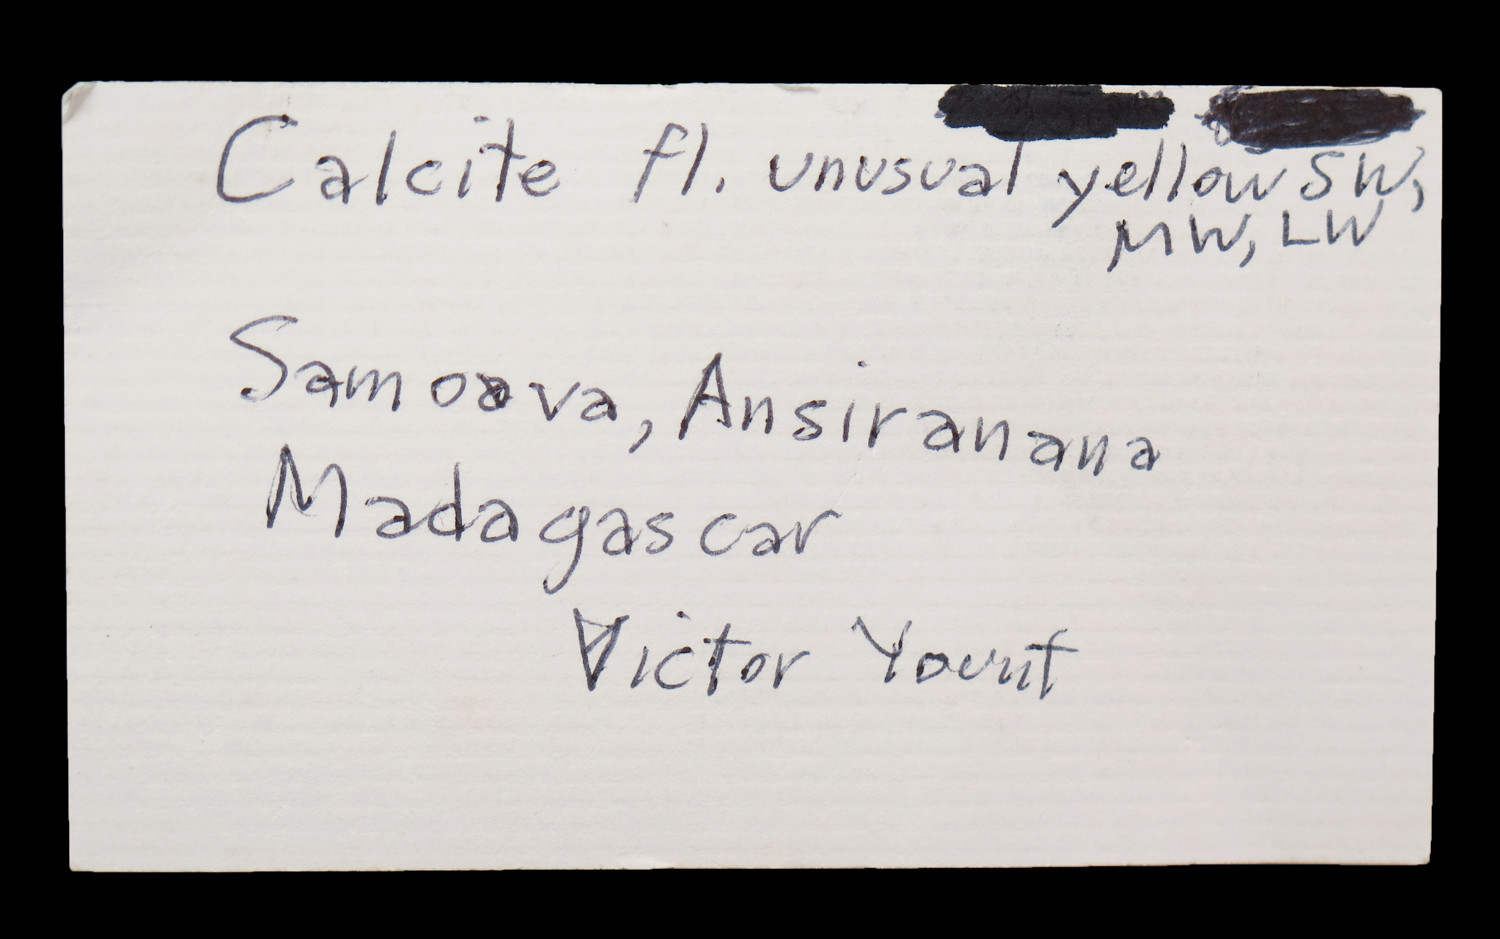 Calcite fl. unusual yellow SW,
MW, LW
Samoava, Ansiranana
Madagascar
Victor Yount